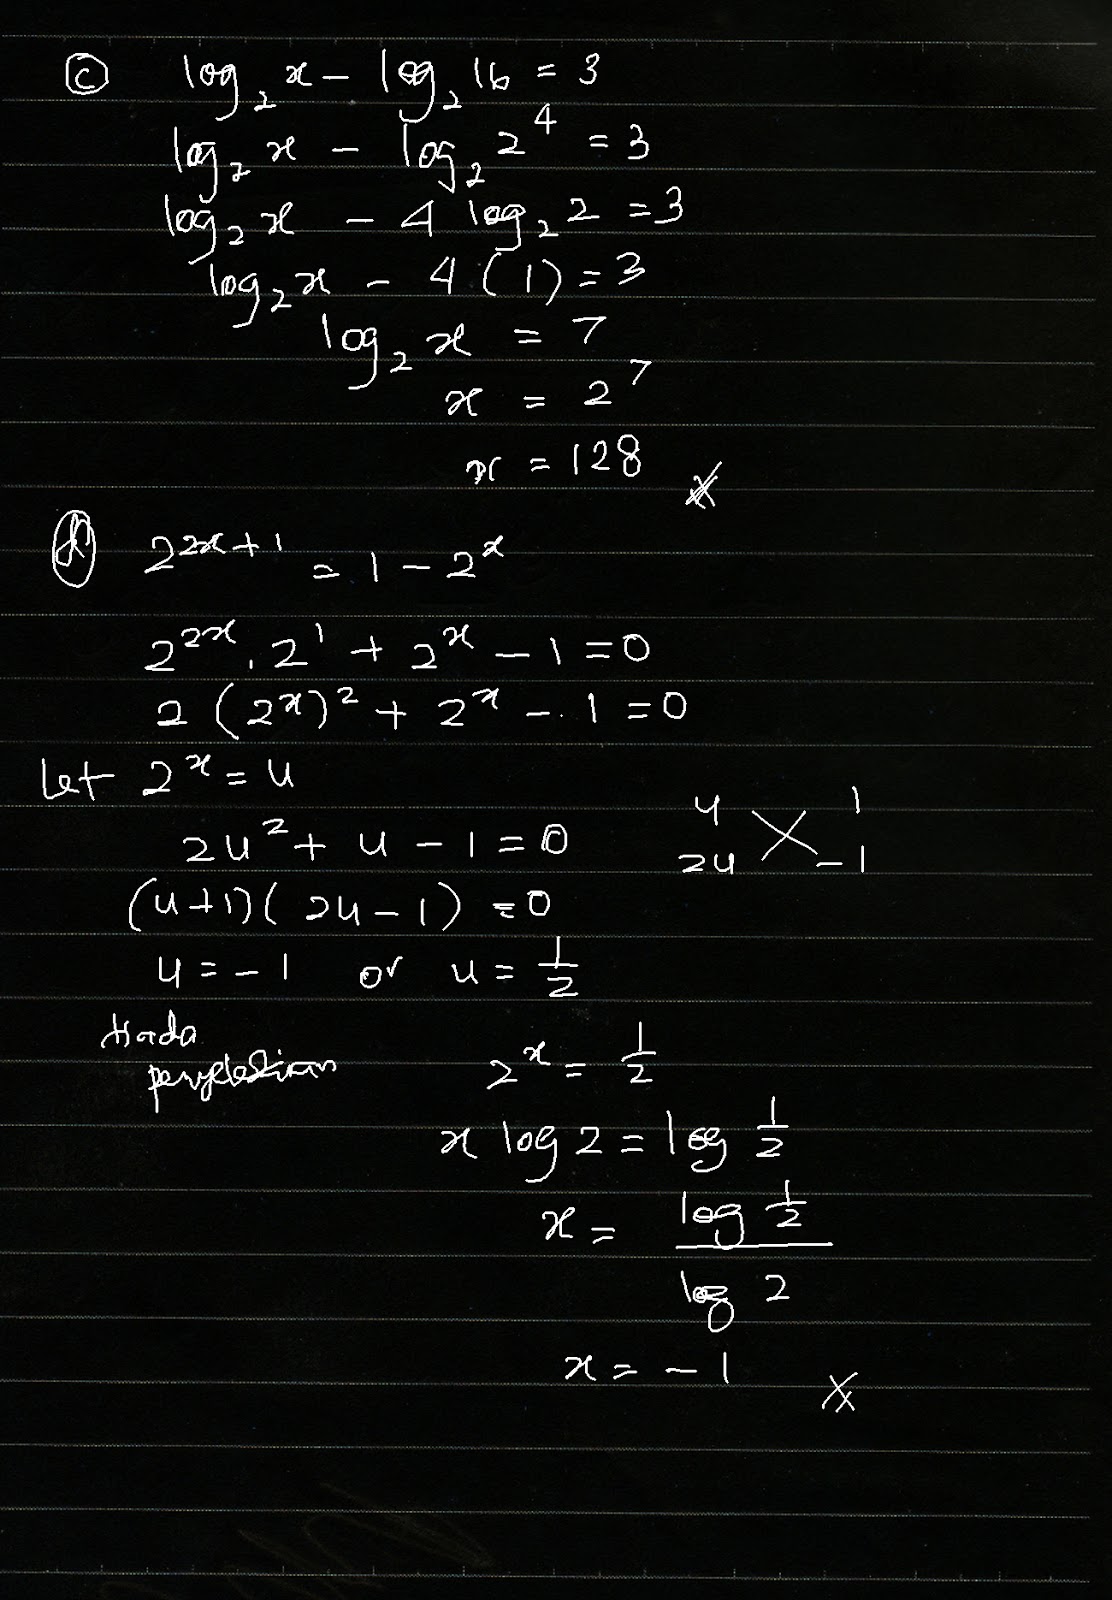 ⓒ log₂ x − log₂ 16 = 3
log₂ x − log₂ 2⁴ = 3
log₂ x − 4 log₂ 2 = 3
log₂ x − 4 (1) = 3
log₂ x = 7
x = 2⁷
x = 128
2²ˣ⁺¹ = 1 − 2ˣ
2²ˣ . 2¹ + 2ˣ − 1 = 0
2 (2ˣ)² + 2ˣ − 1 = 0
Let 2ˣ = u
2u² + u − 1 = 0
u 1
2u −1
(u+1)(2u − 1) = 0
u = −1 or u = 1/2
tiada
penyelesaian
2ˣ = 1/2
x log 2 = log 1/2
x = log 1/2 / log 2
x = −1